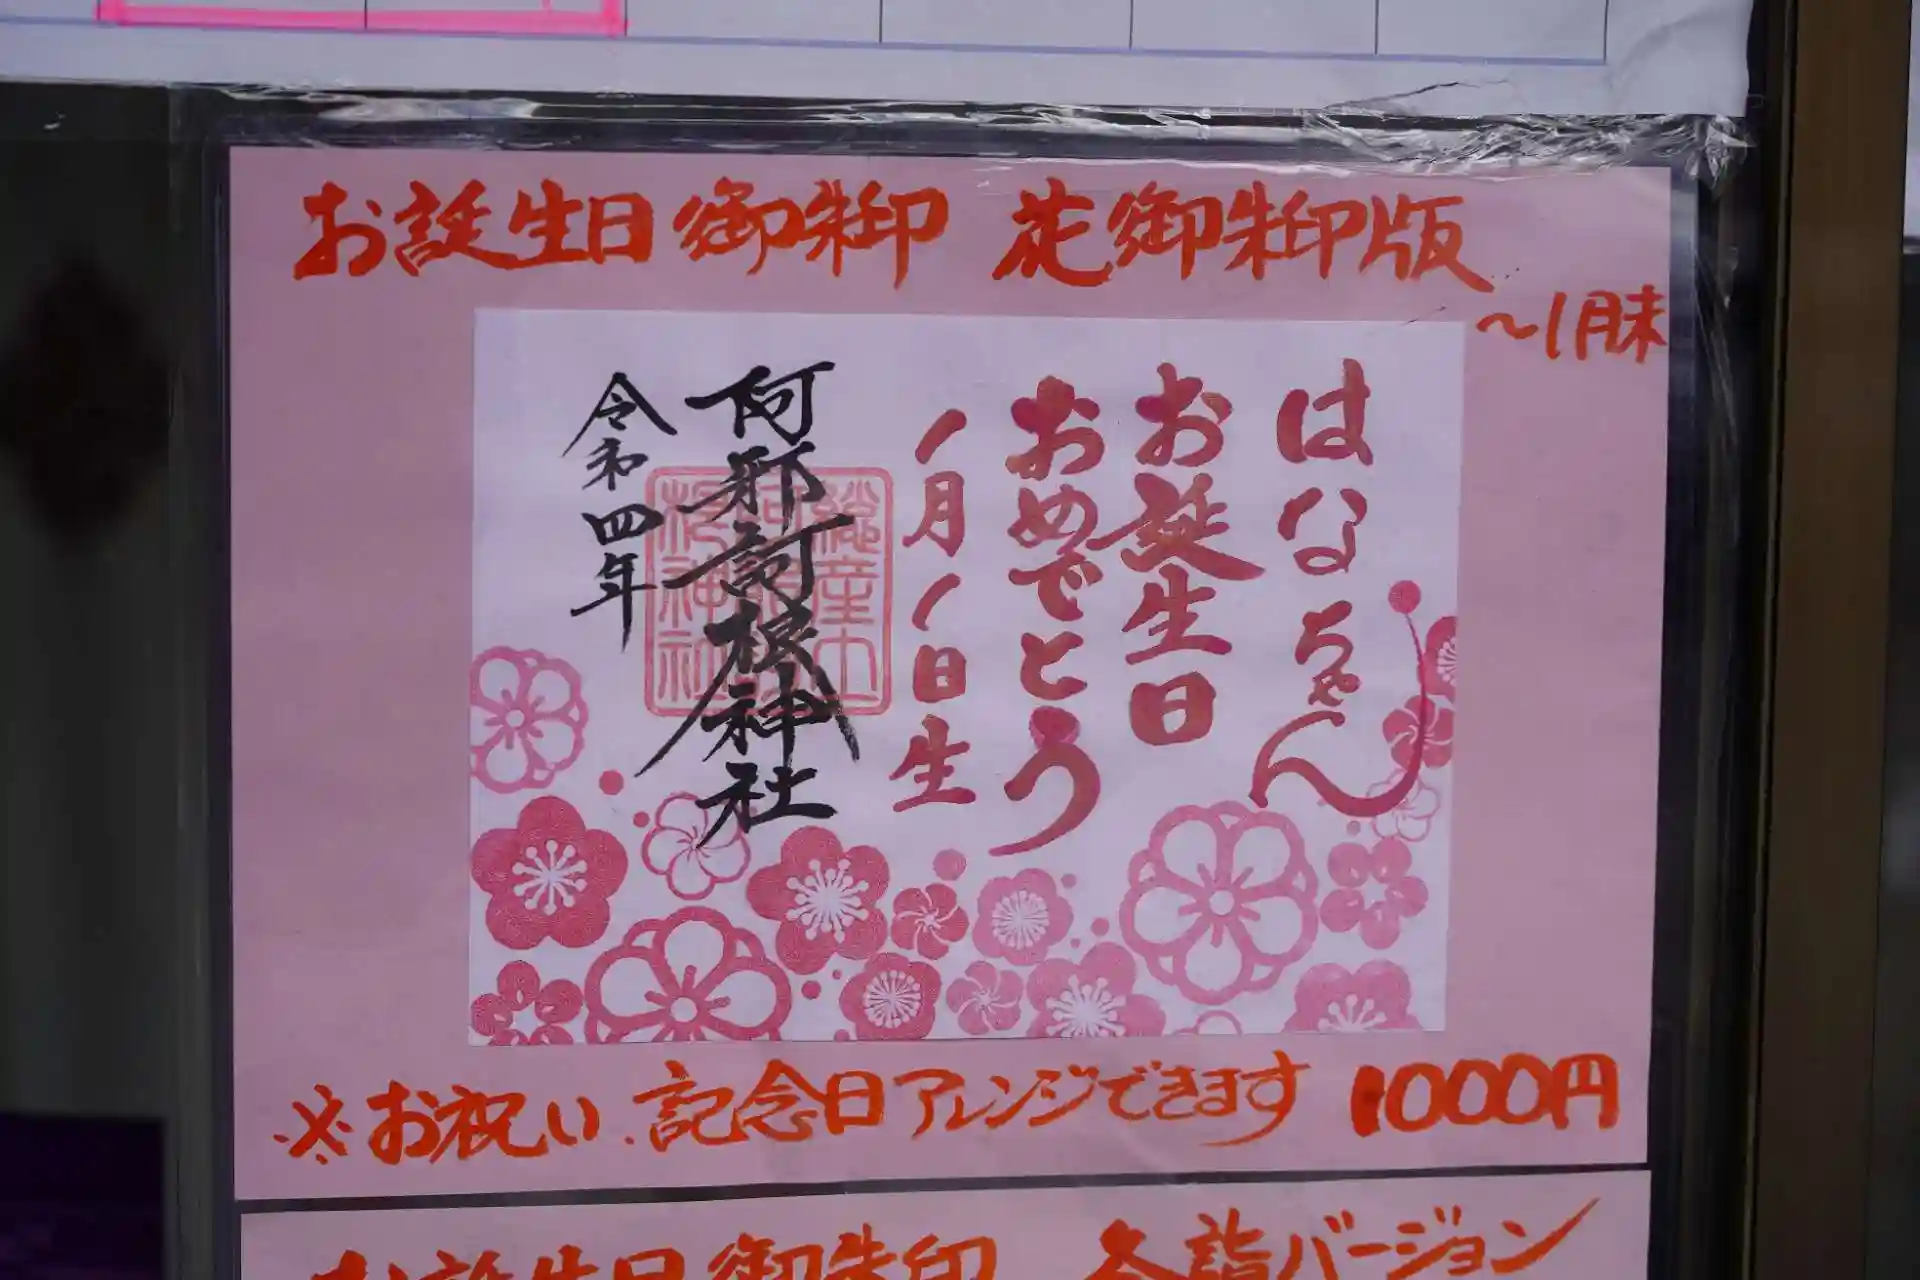 お誕生日御朱印 花御朱印版
～1月末
はなちゃん
お誕生日
おめでとう
1月11日生
阿邪訶根神社
令和四年
※お祝い、記念日アレンジできます 1000円
お誕生日御朱印 参詣バージョン